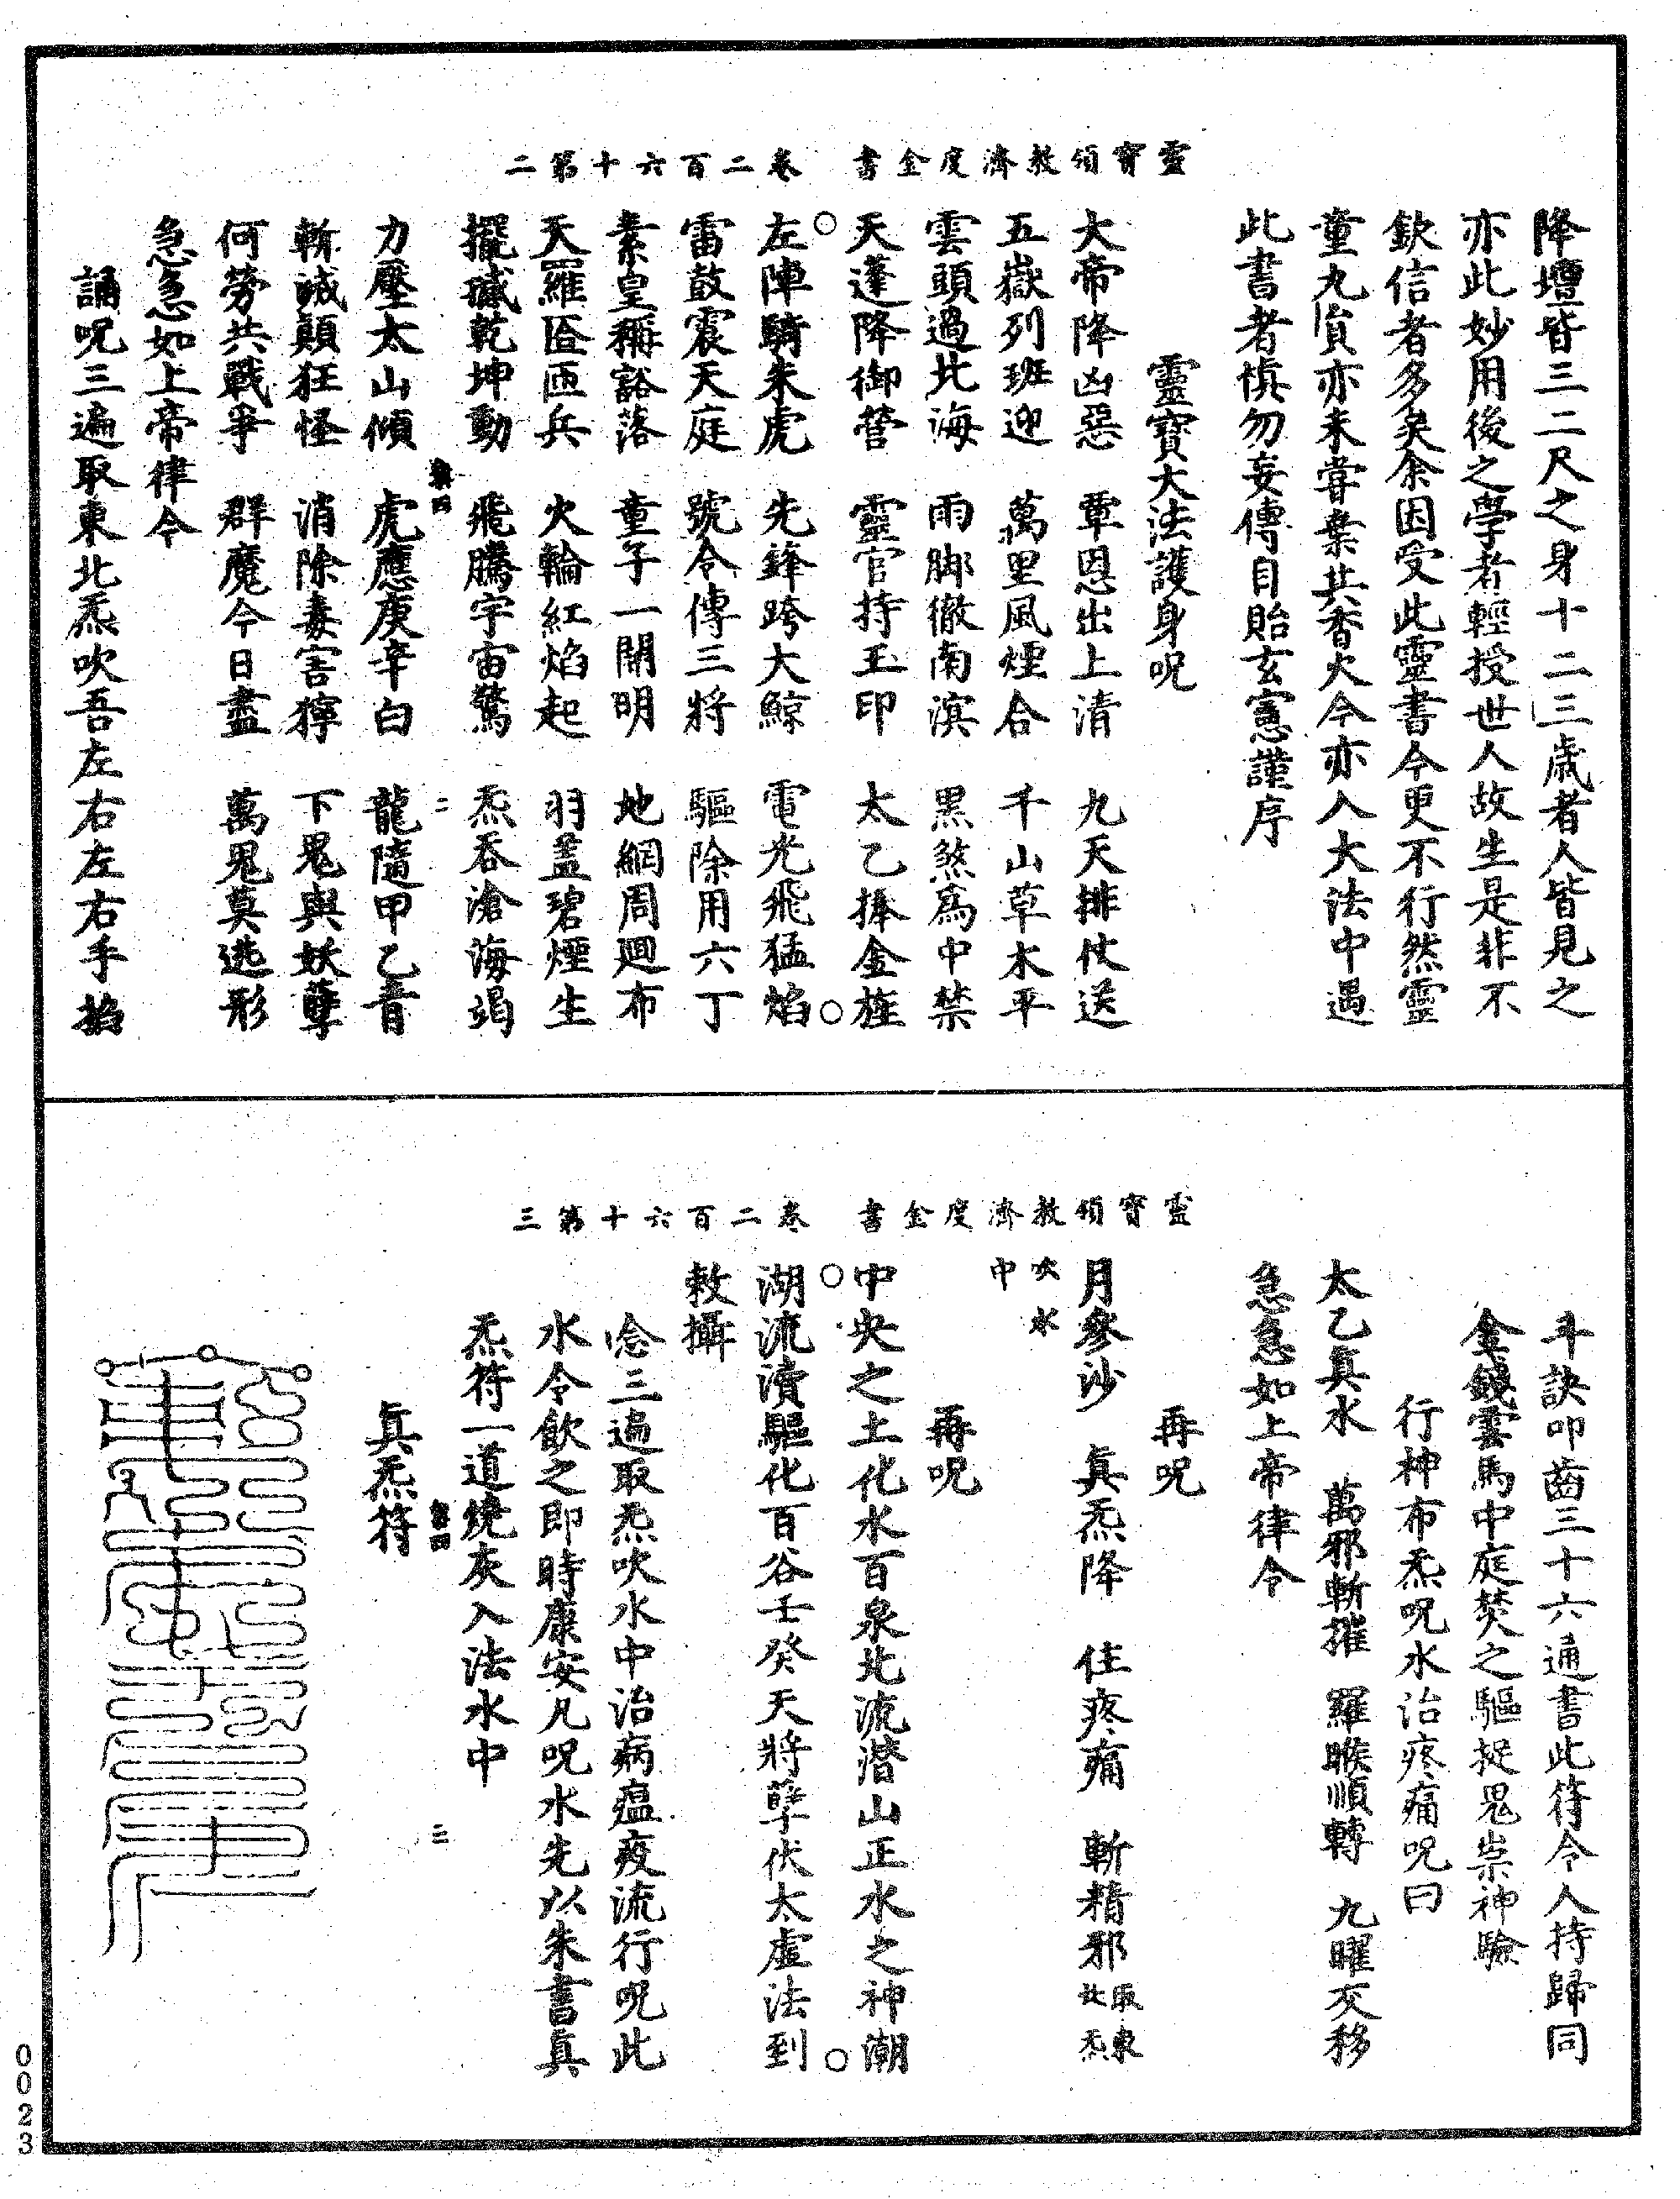 靈寶領教濟度金書 卷二百六十第二
降壇皆三二尺之身十二三歲者人皆見之
亦此妙用後之學者輕授世人故生是非不
欽信者多矣余因受此靈書今更不行然靈
童九眞亦未嘗棄其香火今亦入大法中遇
此書者愼勿妄傳自貽玄憲謹序
靈寶大法護身呪
大帝降凶惡 覃恩出上清 九天排仗送
五嶽列班迎 萬里風煙合 千山草木平
雲頭過北海 雨脚徹南溟 黑煞爲中禁
天蓬降御營 靈官持玉印 太乙捧金旌
左陣騎朱虎 先鋒跨大鯨 電光飛猛焰
雷鼓震天庭 號令傳三將 驅除用六丁
素皇稱豁落 童子一開明 地網周迴布
天羅匼匝兵 火輪紅焰起 羽蓋碧煙生
擺撼乾坤動 飛騰宇宙驚 炁吞滄海竭
二
力壓太山傾 虎應庚辛白 龍隨甲乙音
斬滅顛狂怪 消除毒害獰 下鬼與妖孽
何勞共戰爭 群魔今日盡 萬鬼莫逃形
急急如上帝律令
誦呪三遍取東北炁吹吾左右左右手掐
靈寶領教濟度金書 卷二百六十第三
斗訣叩齒三十六通書此符令人持歸同
金錢雲馬中庭焚之驅捉鬼祟神驗
行神布炁呪水治疼痛呪曰
太乙眞水 萬邪斬摧 羅睺順轉 九曜交移
急急如上帝律令
再呪
月參沙 眞炁降 住疼痛 斬精邪取東北炁
吹水中
再呪
中央之土化水百泉北流潛山正水之神潮
湖流瀆驅化百谷壬癸天將孽伏太虛法到
敕攝
唸三遍取炁吹水中治病瘟疫流行呪此
水令飲之即時康安凡呪水先以朱書眞
炁符一道燒灰入法水中
三
眞炁符
0023